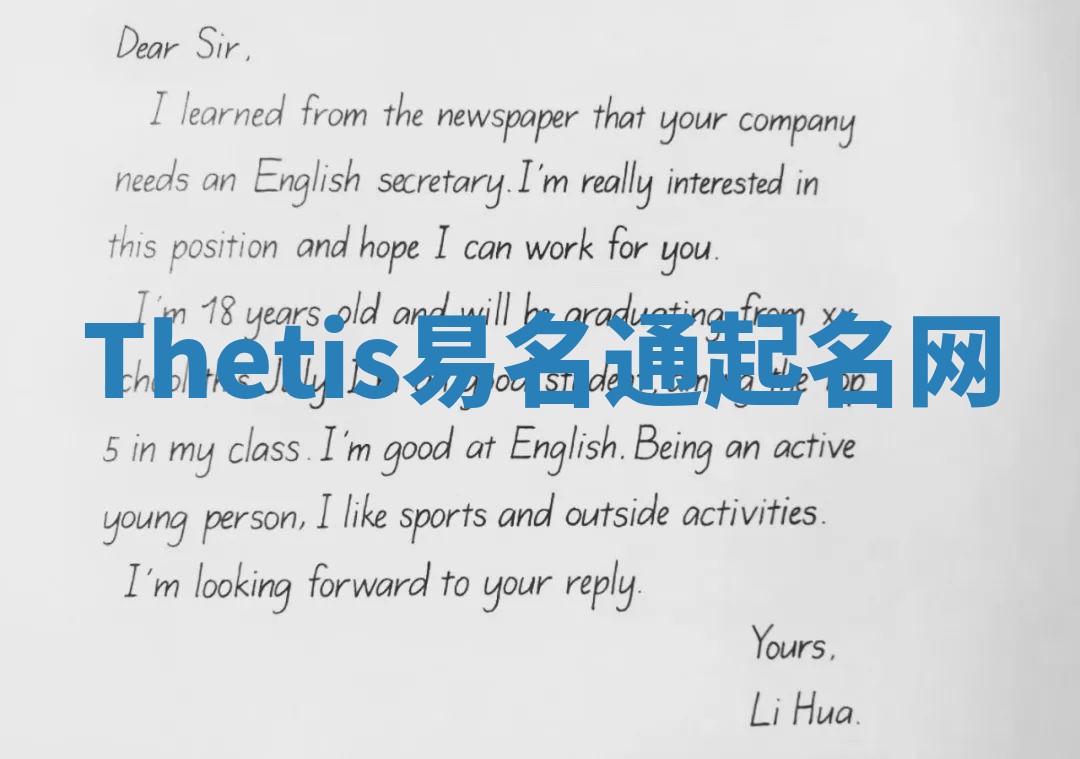 Dear Sir,
I learned from the newspaper that your company
needs an English secretary. I'm really interested in
this position and hope I can work for you.
I'm 18 years old and will be graduating from xx
Thetis易名通起名网
school this July. I'm a good student, among the top
5 in my class. I'm good at English. Being an active
young person, I like sports and outside activities.
I'm looking forward to your reply.
Yours,
Li Hua.